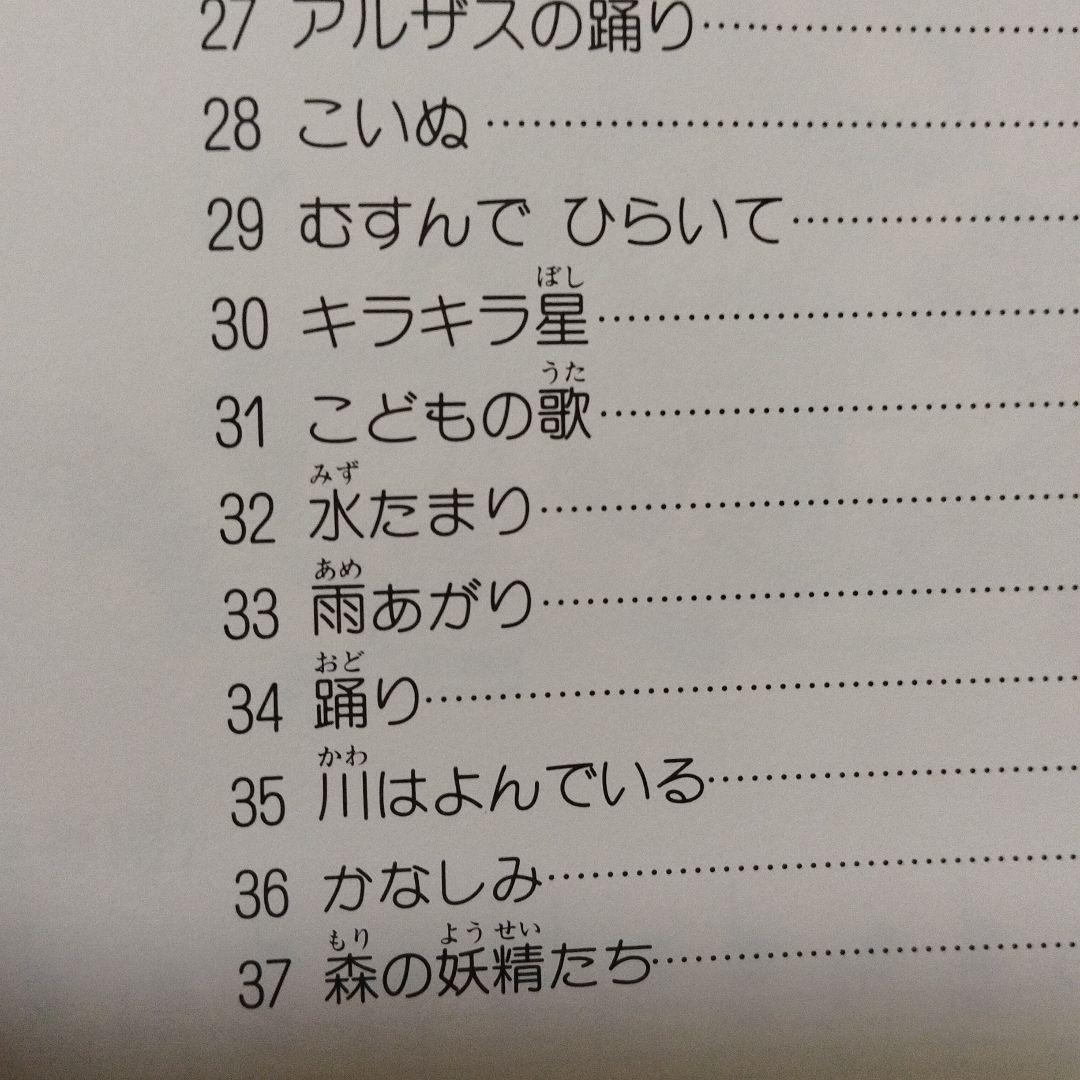 27 アルザスの踊り……………………
28 こいぬ……………………
29 むすんで ひらいて……………………
ぼし
30 キラキラ星……………………
うた
31 こどもの歌……………………
みず
32 水たまり……………………
あめ
33 雨あがり……………………
おど
34 踊り……………………
かわ
35 川はよんでいる……………………
36 かなしみ……………………
もり ようせい
37 森の妖精たち……………………